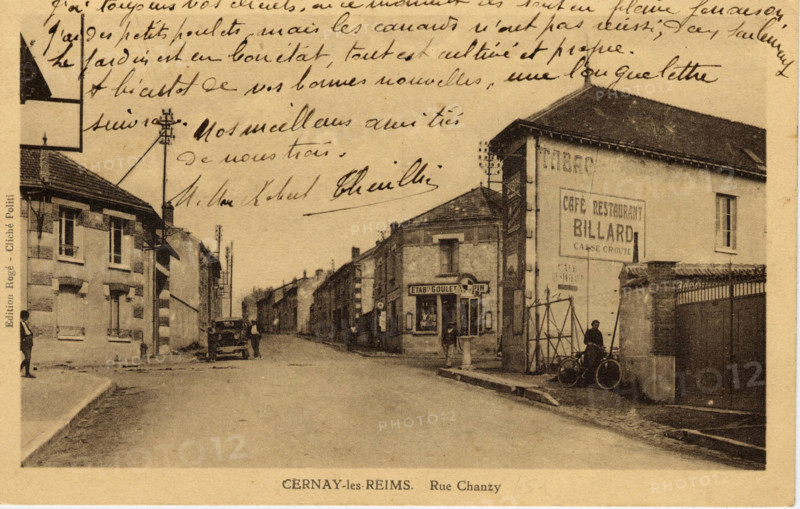 J'ai toujours vos clients, en ce moment ils sont en pleine fenaison,
J'ai des petits poulets, mais les canards n'ont pas réussi,
Le jardin est en bon état, tout est cultivé et propre.
A bientôt de vos bonnes nouvelles, une longue lettre
suivra.
Nos meilleurs amitiés
de nous trois.
Robert Thuillier
TABAC
CAFÉ RESTAURANT
BILLARD
CASSE CROUTE
CAFÉ
ETABts GOULET
PIN
Edition Rogé - Cliché Politi
CERNAY-les-REIMS. Rue Chanzy
PHOTO12
PHOTO12
PHOTO12
PHOTO12
PHOTO12
PHOTO12
PHOTO12
PHOTO12